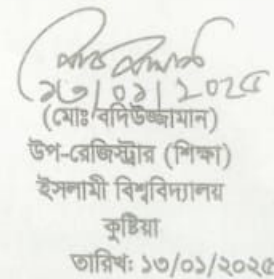 ১৩/০১/২০২৫
(মোঃ বদিউজ্জামান)
উপ-রেজিস্ট্রার (শিক্ষা)
ইসলামী বিশ্ববিদ্যালয়
কুষ্টিয়া
তারিখঃ ১৩/০১/২০২৫